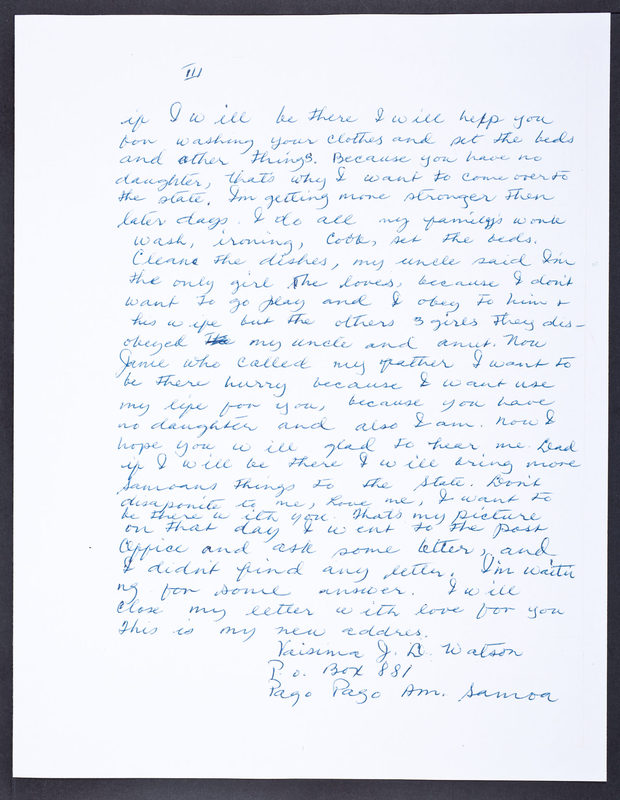 III
if I will be there I will help you
for washing your clothes and set the beds
and other things. Because you have no
daughter, that's why I want to come over to
the state. I'm getting more stronger then
later days. I do all my family's work
wash, ironing, cook, set the beds.
Cleane the dishes, my uncle said I'm
the only girl he loves, because I don't
want to go play and I obey to him +
his wife but the others 3 girls they dis-
obeyed my uncle and aunt. Now
Jamie who called my father I want to
be there hurry because I want use
my life for you, because you have
no daughter and also I am. Now I
hope you will glad to hear me. Dad
if I will be there I will bring more
Samoans things to the State. Don't
disaponite to me, love me, I want to
be there with you. That's my picture
on that day I went to the Post
Office and ask some letter, and
I didn't find any letter. I'm waiti
ng for some answer. I will
close my letter with love for you
this is my new addres.
Vaisima J. D. Watson
P.O. Box 881
Pago Pago Am. Samoa